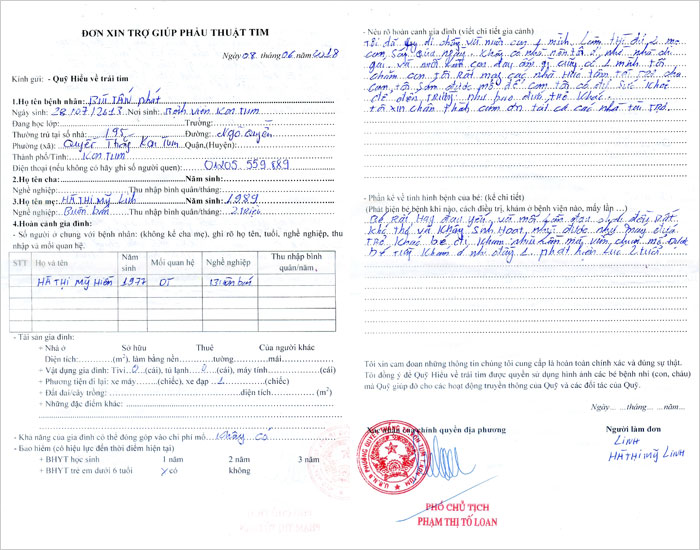 ĐƠN XIN TRỢ GIÚP PHẪU THUẬT TIM
Ngày 08 tháng 06 năm 2018
Kính gửi: - Quỹ Hiểu về trái tim
1.Họ tên bệnh nhân: BÙI TẤN phát
Ngày sinh: 28,10,12013 Nơi sinh: Bệnh viện Kon Tum
Đang học lớp: Trường:
Thường trú tại số nhà: 195 Đường: Ngô Quyền
Phường (xã): Quyết Thắng Kon Tum Quận,(Huyện):
Thành phố/Tỉnh: Kon Tum
Điện thoại (nếu không có hãy ghi số người quen): 01205 559 889
2.Họ tên cha: Năm sinh:
Nghề nghiệp: Thu nhập bình quân/tháng:
3.Họ tên mẹ: HÀ THỊ MỸ Linh Năm sinh: 1989
Nghề nghiệp: Buôn bán Thu nhập bình quân/tháng: 2 triệu
4.Hoàn cảnh gia đình:
- Số người ở chung với bệnh nhân: (không kể cha mẹ), ghi rõ họ tên, tuổi, nghề nghiệp, thu
nhập và mối quan hệ.
STT Họ và tên Năm sinh Mối quan hệ Nghề nghiệp Thu nhập bình quân/năm
HÀ THỊ MỸ HIỀN 1977 DÌ Buôn bán
- Tài sản gia đình:
+ Nhà ở Sở hữu Thuê Của người khác
Diện tích: (m²), làm bằng nền tường mái
+ Vật dụng gia đình: Tivi 0 (cái), tủ lạnh 0 (cái), máy tính (cái)
+ Phương tiện đi lại: xe máy (chiếc), xe đạp 1 (chiếc)
+ Đất đai/cây trồng: diện tích (m²)
+ Những đặc điểm khác:
- Khả năng của gia đình có thể đóng góp vào chi phí mổ: không có
- Bảo hiểm (có hiệu lực đến thời điểm hiện tại)
+ BHYT học sinh 1 năm 2 năm 3 năm
+ BHYT trẻ em dưới 6 tuổi có không
- Nêu rõ hoàn cảnh gia đình (viết chi tiết gia cảnh)
Tôi đã và nuôi con 1 mình, Làm
con,
và nuôi con đau ốm 1 mình tôi
chăm con tôi Rất may các nhà Hảo tâm
con tôi sớm được mổ để con tôi có đủ sức khỏe
để đến Trường như bao đứa Trẻ khác.
tôi xin chân thành cảm ơn tất cả các nhà tài trợ.
- Phần kể về tình hình bệnh của bé: (kể chi tiết)
(Phát hiện bé bệnh khi nào, cách điều trị, khám ở bệnh viện nào, mấy lần …)
Bé Rất Hay đau yếu, và mỗi Lần đau
khó thở và không Sinh Hoạt, như được như mấy đứa
TRẻ Khác bé đi Khám nhiều Lần mấy viện, chưa mổ được
phát hiện Lúc 2 tuổi.
Tôi xin cam đoan những thông tin chúng tôi cung cấp là hoàn toàn chính xác và đúng sự thật.
Tôi đồng ý để Quỹ Hiểu về trái tim được quyền sử dụng hình ảnh các bé bệnh nhi (con, cháu)
mà Quỹ giúp đỡ cho các hoạt động truyền thông của Quỹ và các đối tác của Quỹ.
Ngày… tháng… năm…
Xác nhận của chính quyền địa phương Người làm đơn
LINH
HÀ THỊ MỸ LINH
PHÓ CHỦ TỊCH
PHẠM THỊ TỐ LOAN